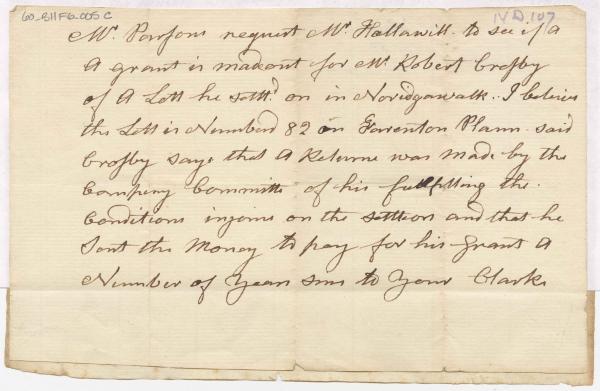 60-B11F6-005C
IV D. 107
Mr. Parsons request Mr. Hallawill to see if a
A grant is made out for Mr. Robert Crosby
of A Lott he settd. on in Noridgawalk. I believe
the Lott is Numberd 82 on Farenton Plann said
Crosby says that A Returne was made by the
Company Committe of his fullfilling the
Conditions injoine on the settlers and that he
Sent the Money to pay for his Grant A
Number of Years sins to Your Clarke